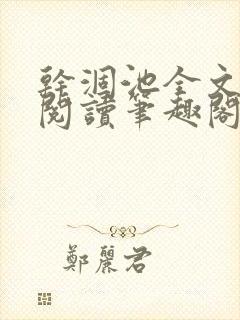 幹涸池全文
閱讀筆趣閣
鄭麗君